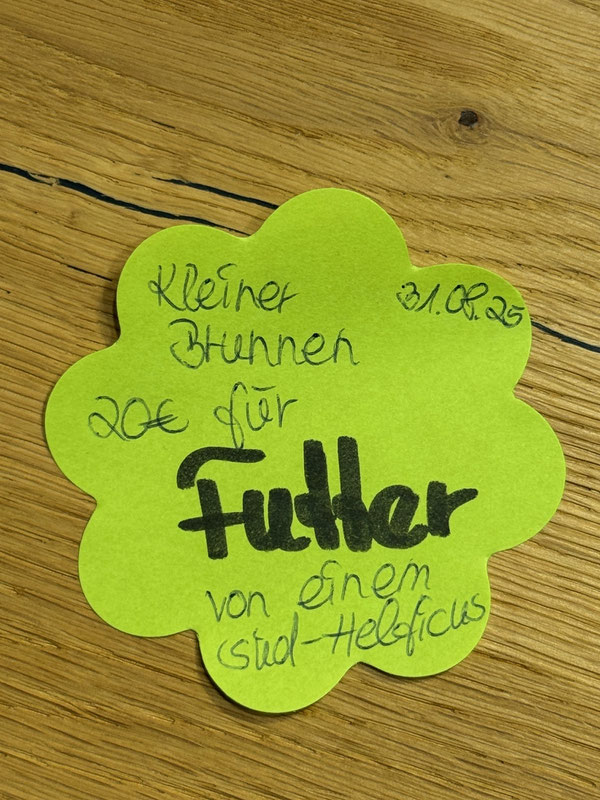 Kleiner 31.08.25
Brunnen
20€ für
Futter
von einem
Süd-Helficus